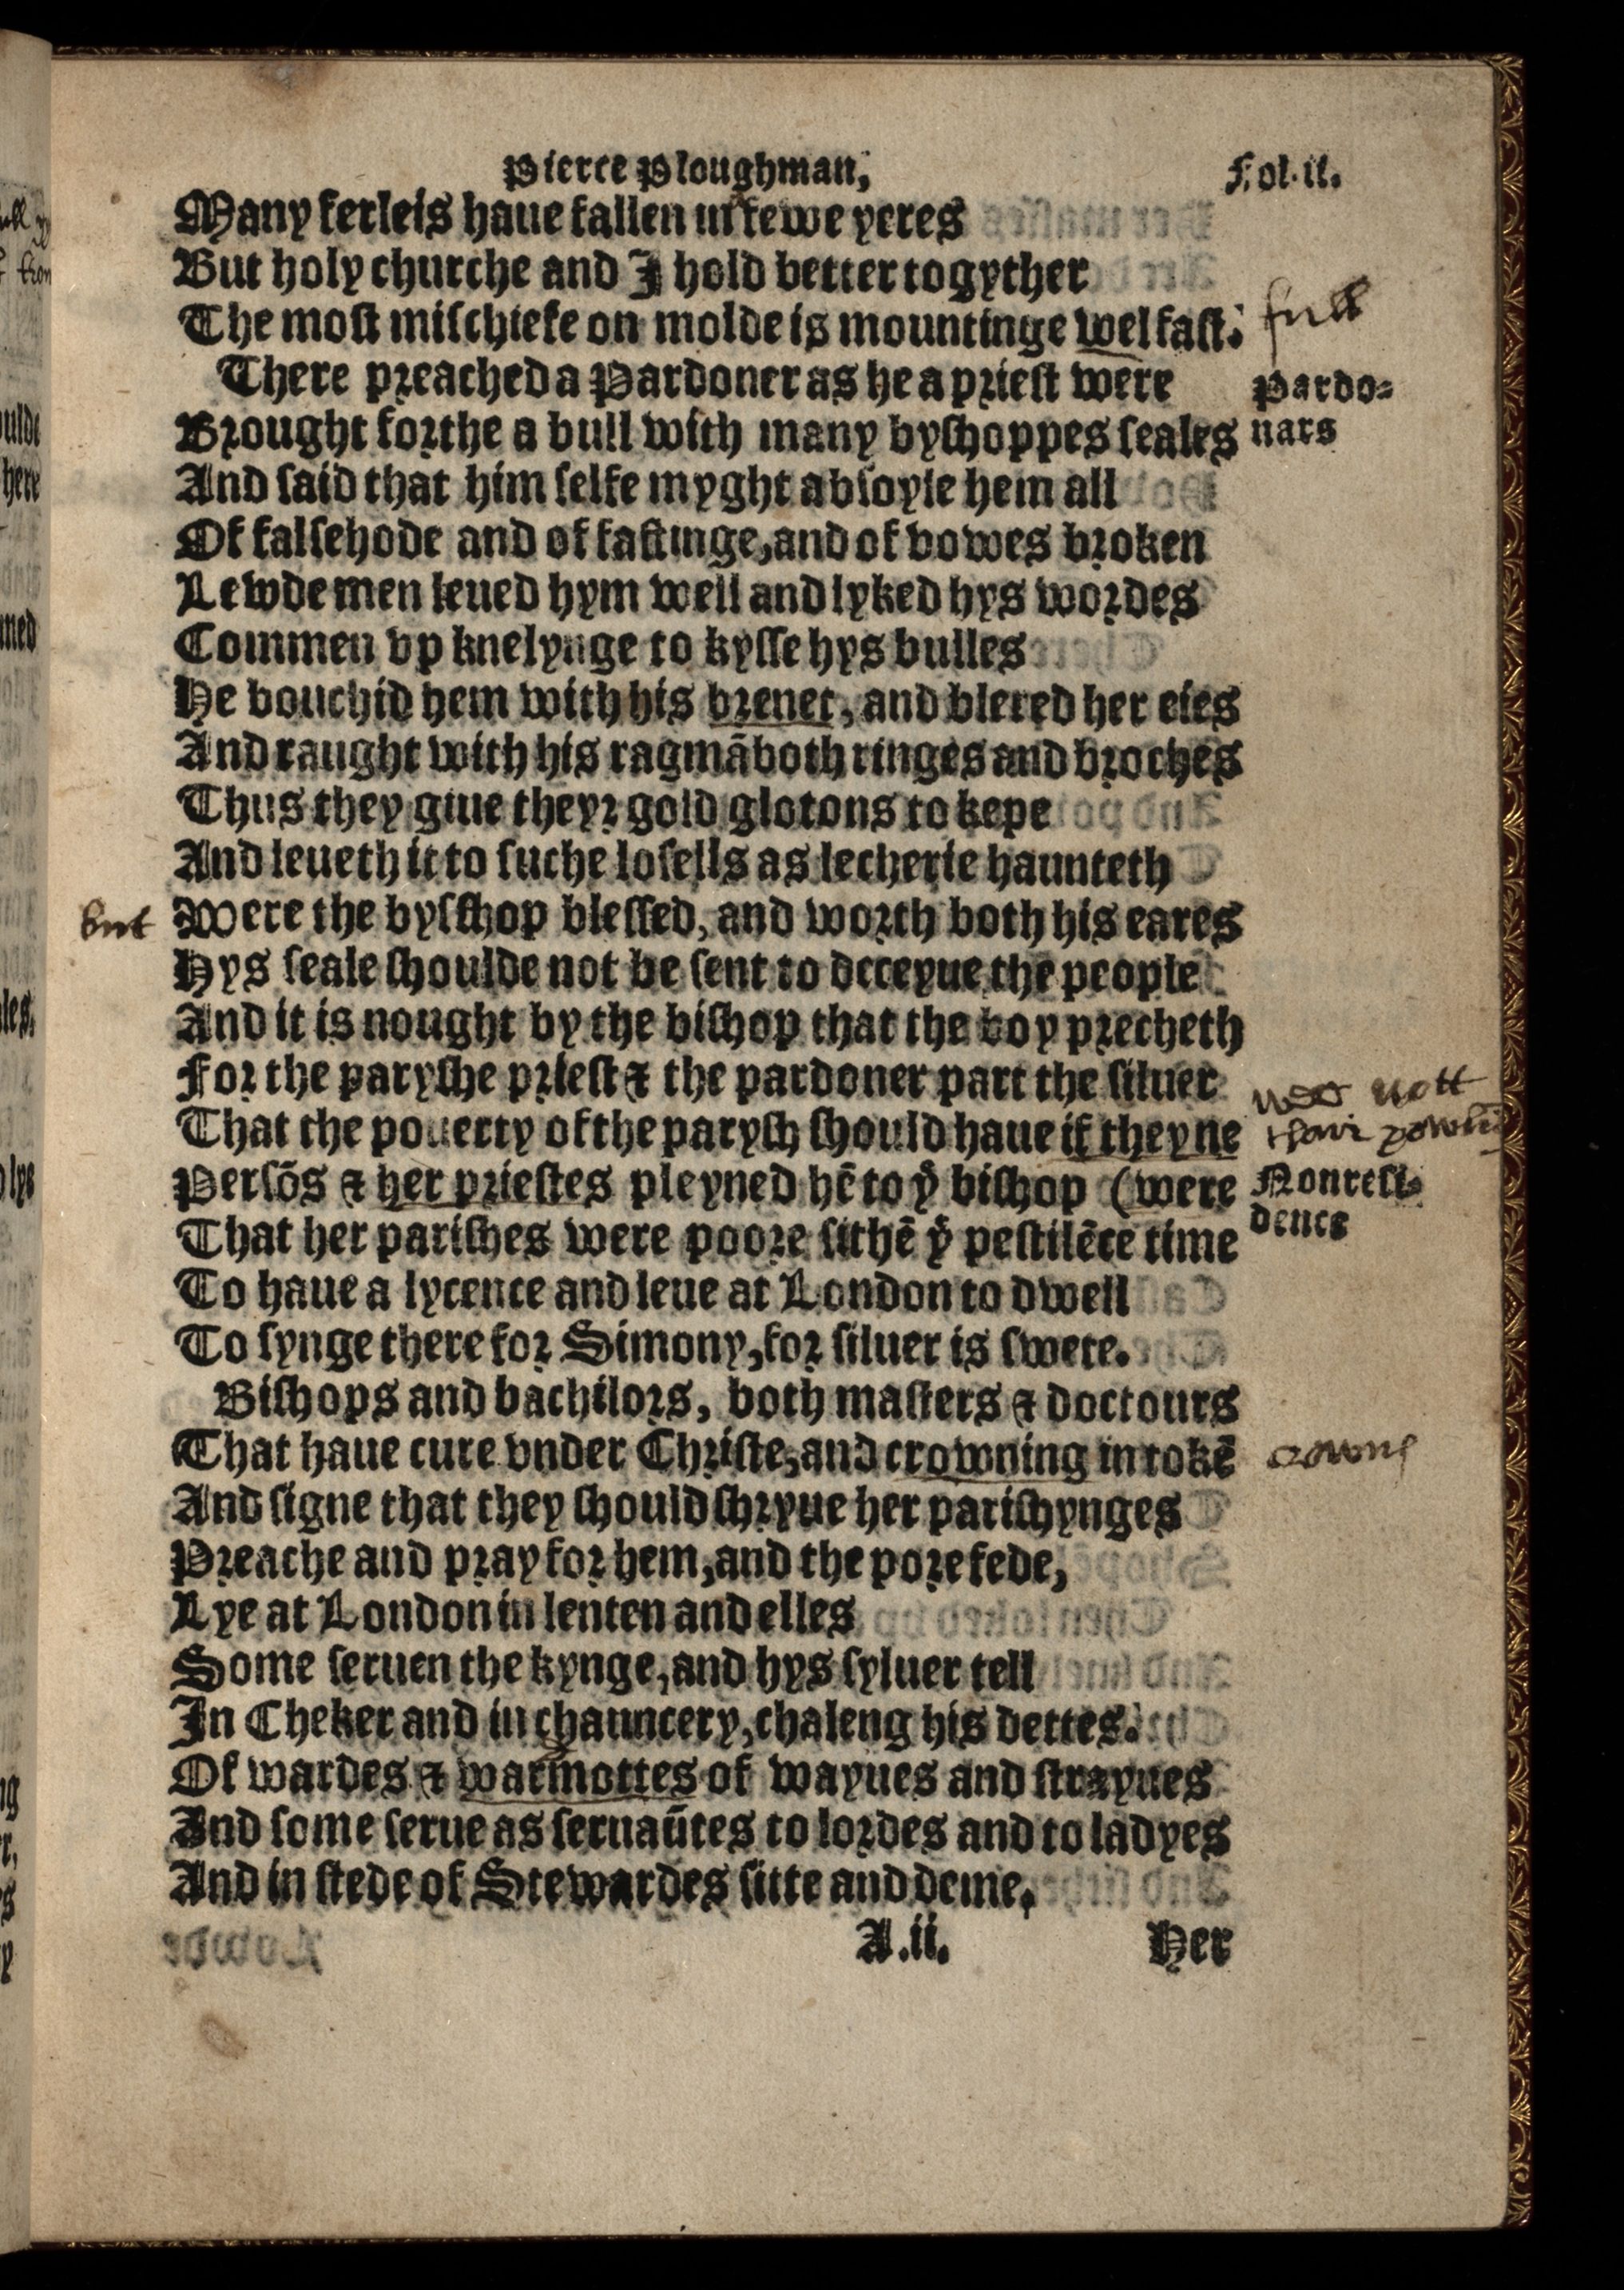 Pierce Ploughman,
Fol.ii.
Many ferleis haue fallen in fewe yeres
But holy churche and I hold better togyther
The most mischiefe on molde is mountinge wel fast.
full
There preached a Pardoner as he a priest were
Pardo-
Brought forthe a bull with many byshoppes seales
nars
And said that him selfe myght absoyle hem all
Of falsehode and of fastinge, and of vowes broken
Lewde men leued hym well and lyked hys wordes
Commen vp knelynge to kysse hys bulles
He bouchid hem with his brenet, and blered her eies
And raught with his ragmā both ringes and broches
Thus they giue theyr gold glotons to kepe
And leueth it to suche losells as lecherie haunteth
but
Were the bysshop blessed, and worth both his eares
Hys seale shoulde not be sent to deceyue the people
And it is nought by the bishop that the boy precheth
For the paryshe priest & the pardoner part the siluer
nott
That the pouerty of the parysh should haue if they ne
Persōs & her priestes pleyned hē to yͤ bishop (were
Nonresi-
dence
That her parishes were poore sithē yͤ pestilēce time
To haue a lycence and leue at London to dwell
To synge there for Simony, for siluer is swete.
Bishops and bachilors, both masters & doctours
That haue cure vnder Christe, and crowning in tokē
And signe that they should shryue her parishynges
Preache and pray for hem, and the pore fede,
Lye at London in lenten and elles
Some seruen the kynge, and hys syluer tell
In Cheker and in chauncery, chaleng his dettes.
Of wardes & warmottes of wayues and strayues
And some serue as seruaūtes to lordes and to ladyes
And in stede of Stewardes sitte and deme,
A.ii.
Her